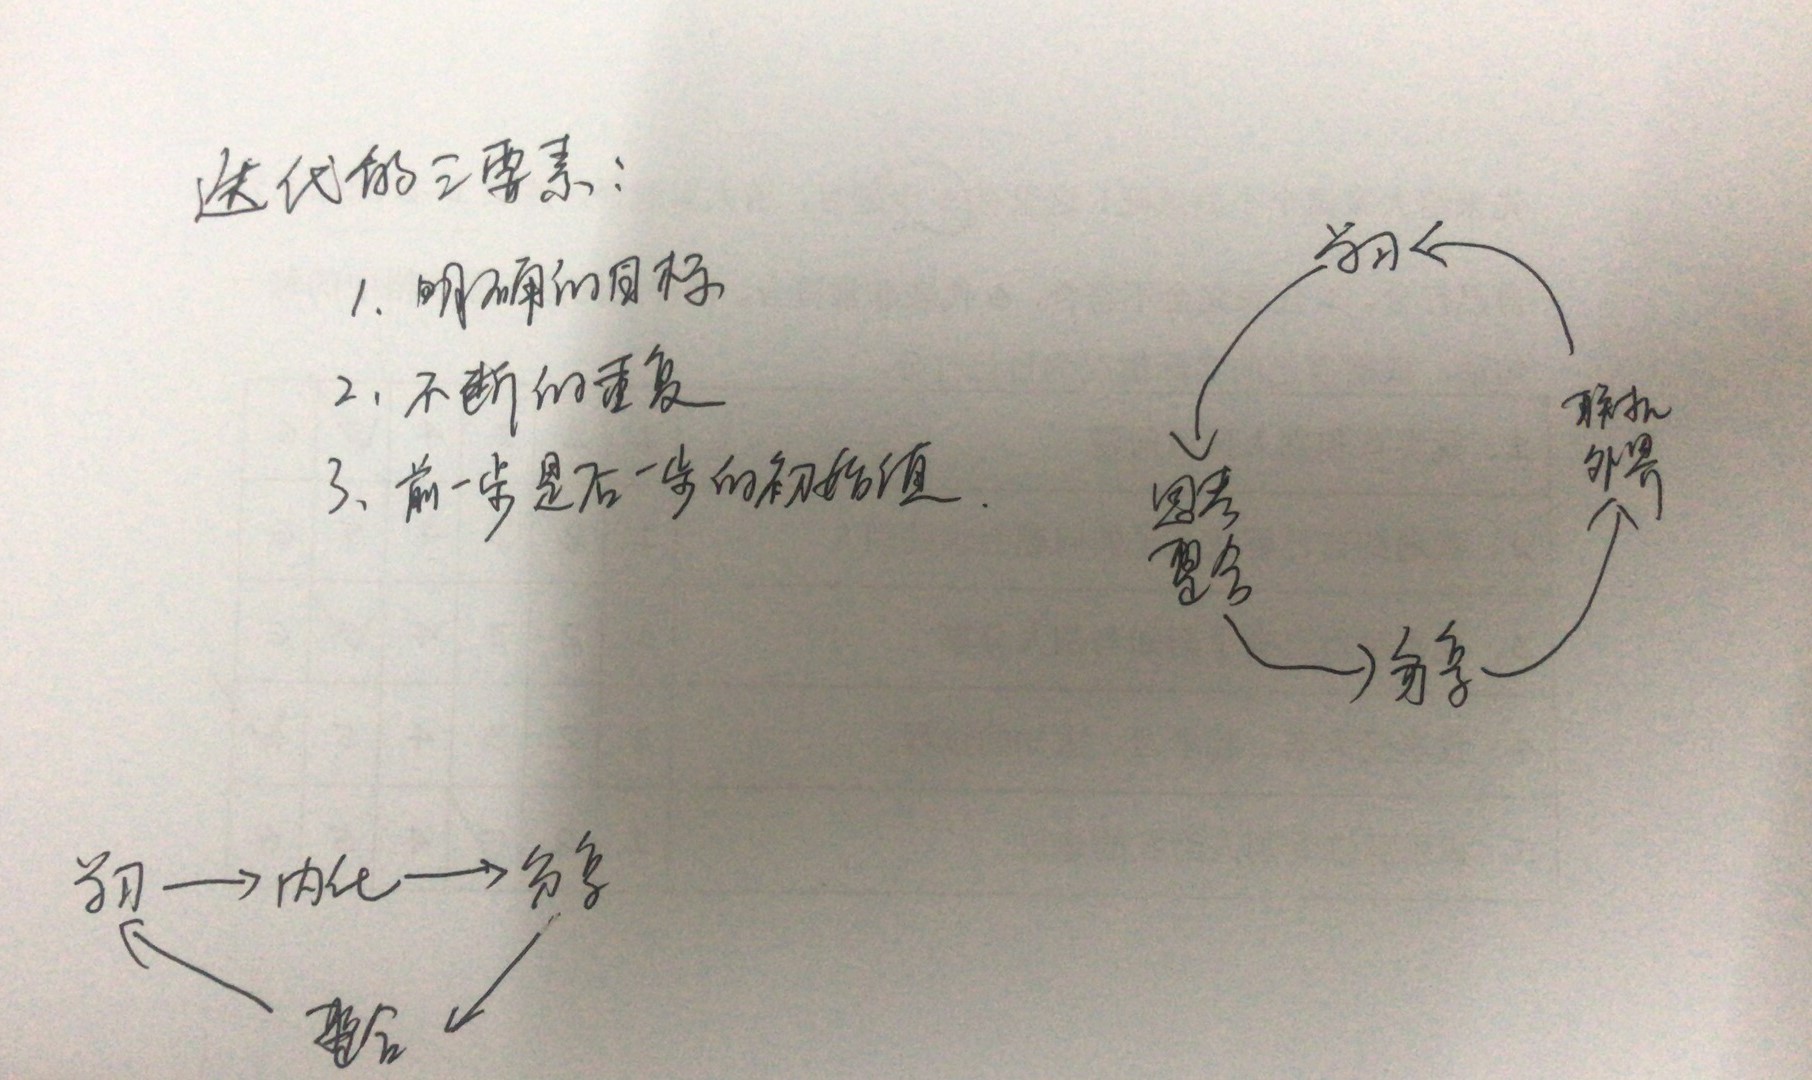 迭代的三要素:
1、明确的目标
2、不断的重复
3、前一步是后一步的初始值.
学习
思考
整合
分享
联机
外界
学习 → 内化 → 分享
整合